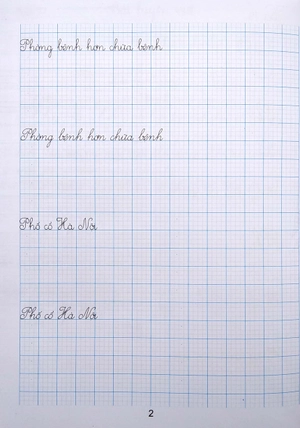 Phòng bệnh hơn chữa bệnh
Phòng bệnh hơn chữa bệnh
Phố cổ Hà Nội
Phố cổ Hà Nội
2